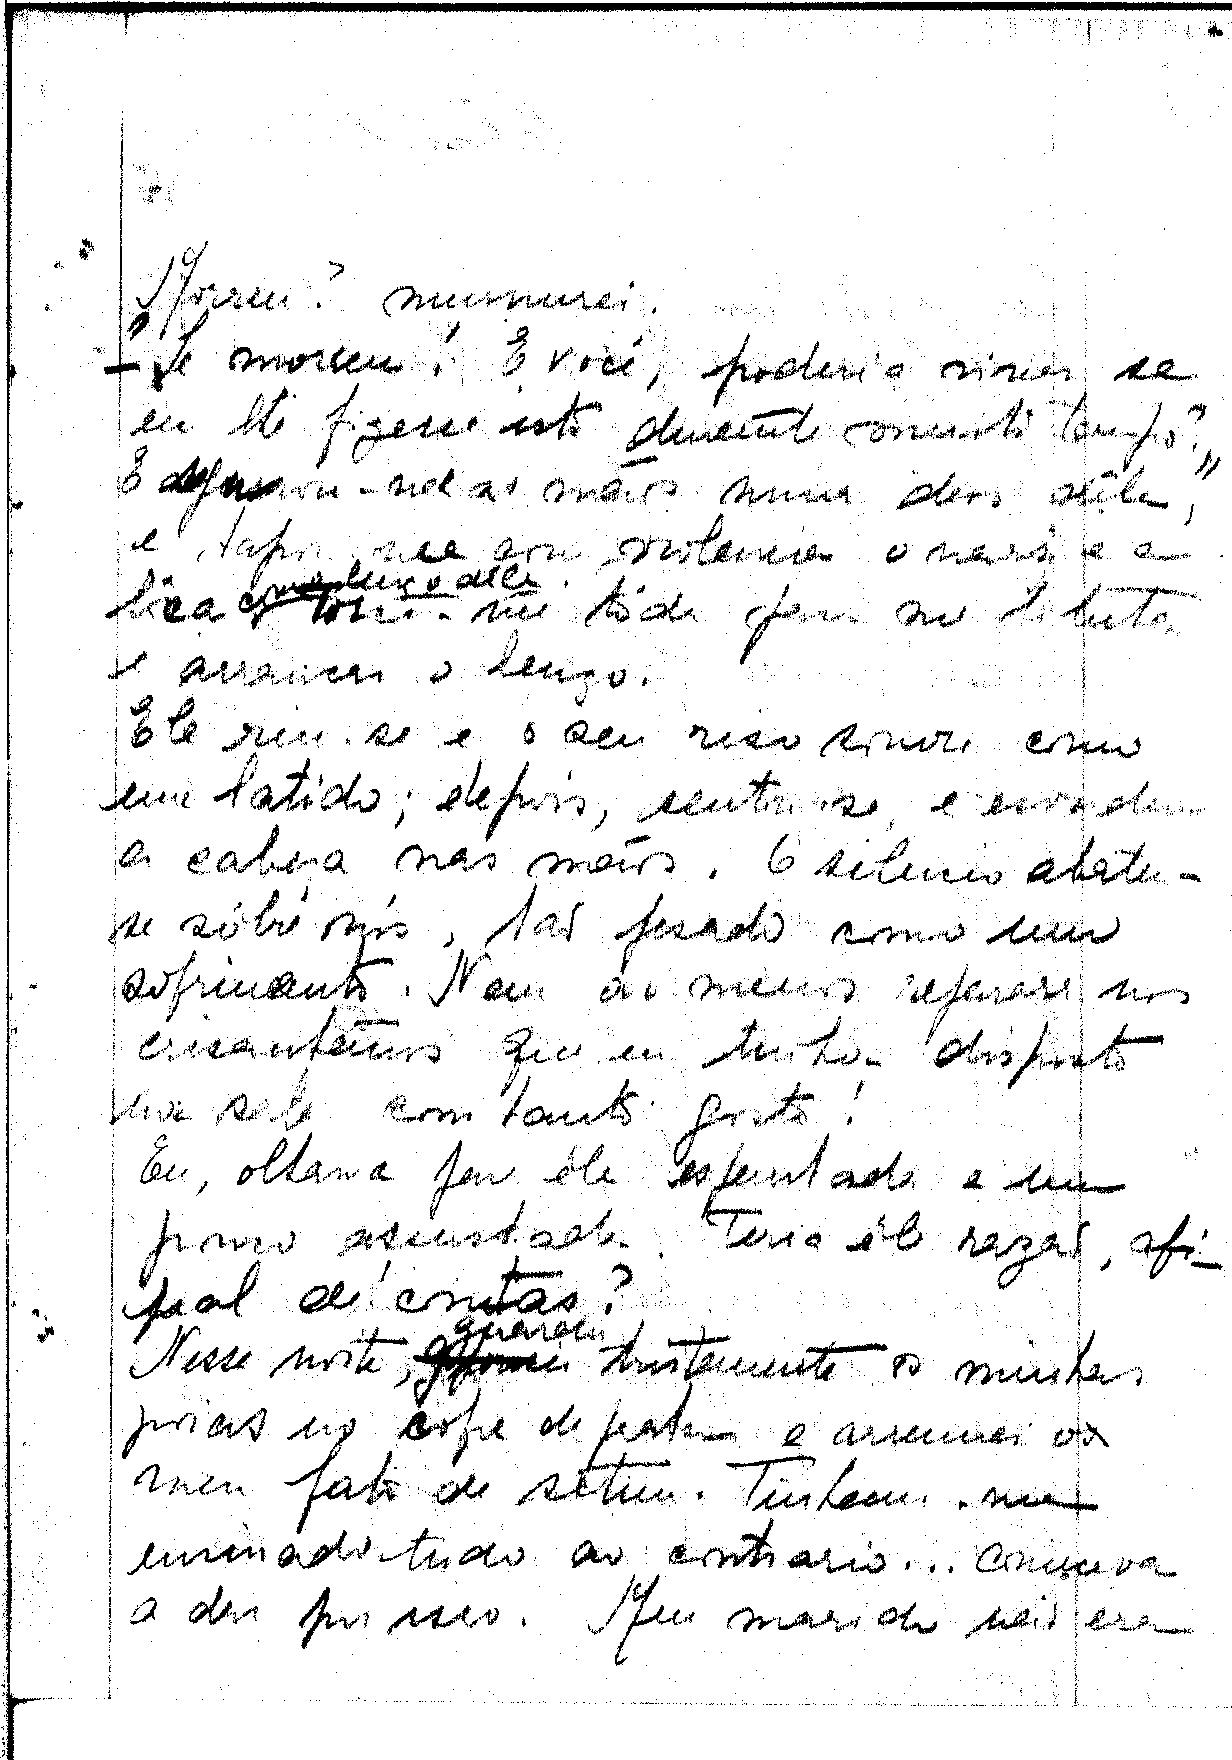 Morreu? murmurei.
– "Se morreu! E você, poderia viver se
eu lhe fizesse isto durante muito tempo?"
E as mãos numa dêle,
e tapou-me com violencia o nariz e a
bôca com o lenço dele. me tôda para me libertar
e arrancar o lenço.
Ele riu-se e o seu riso como
um latido; depois, sentou-se, e escondeu
a cabeça nas mãos. O silencio abateu-
se sôbre nós, tão pesado como um
sofrimento. Nem ao menos reparara nos
crisantemos que eu tinha disposto
na sala com tanto gosto!
Eu, olhava para êle espantada e um
pouco assustada. Teria êle razão, afi-
nal de contas?
Nesse noite, guardei tristemente as minhas
joias no cofre de prata e arrumei o
meu fato de setim. Tinham-me
ensinado tudo ao contrario... Começava
a dar por isso. Meu marido não era